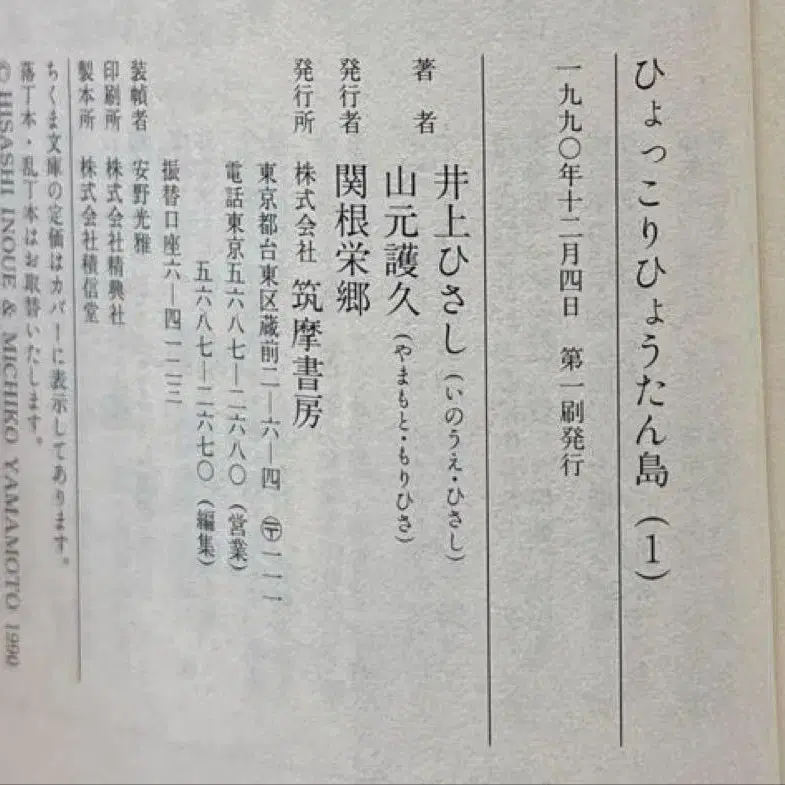 ひょっこりひょうたん島（1）
一九九〇年十二月四日　第一刷発行
著者　井上ひさし（いのうえ・ひさし）
山元護久（やまもと・もりひさ）
発行者　関根栄郷
発行所　株式会社　筑摩書房
東京都台東区蔵前二―六―四　〒一一一
電話東京五六八七―二六八〇（営業）
五六八七―二六七〇（編集）
振替口座六―四一二三
装幀者　安野光雅
印刷所　株式会社精興社
製本所　株式会社積信堂
ちくま文庫の定価はカバーに表示してあります。
落丁本・乱丁本はお取替いたします。
© HISASHI INOUE & MICHIKO YAMAMOTO 1990